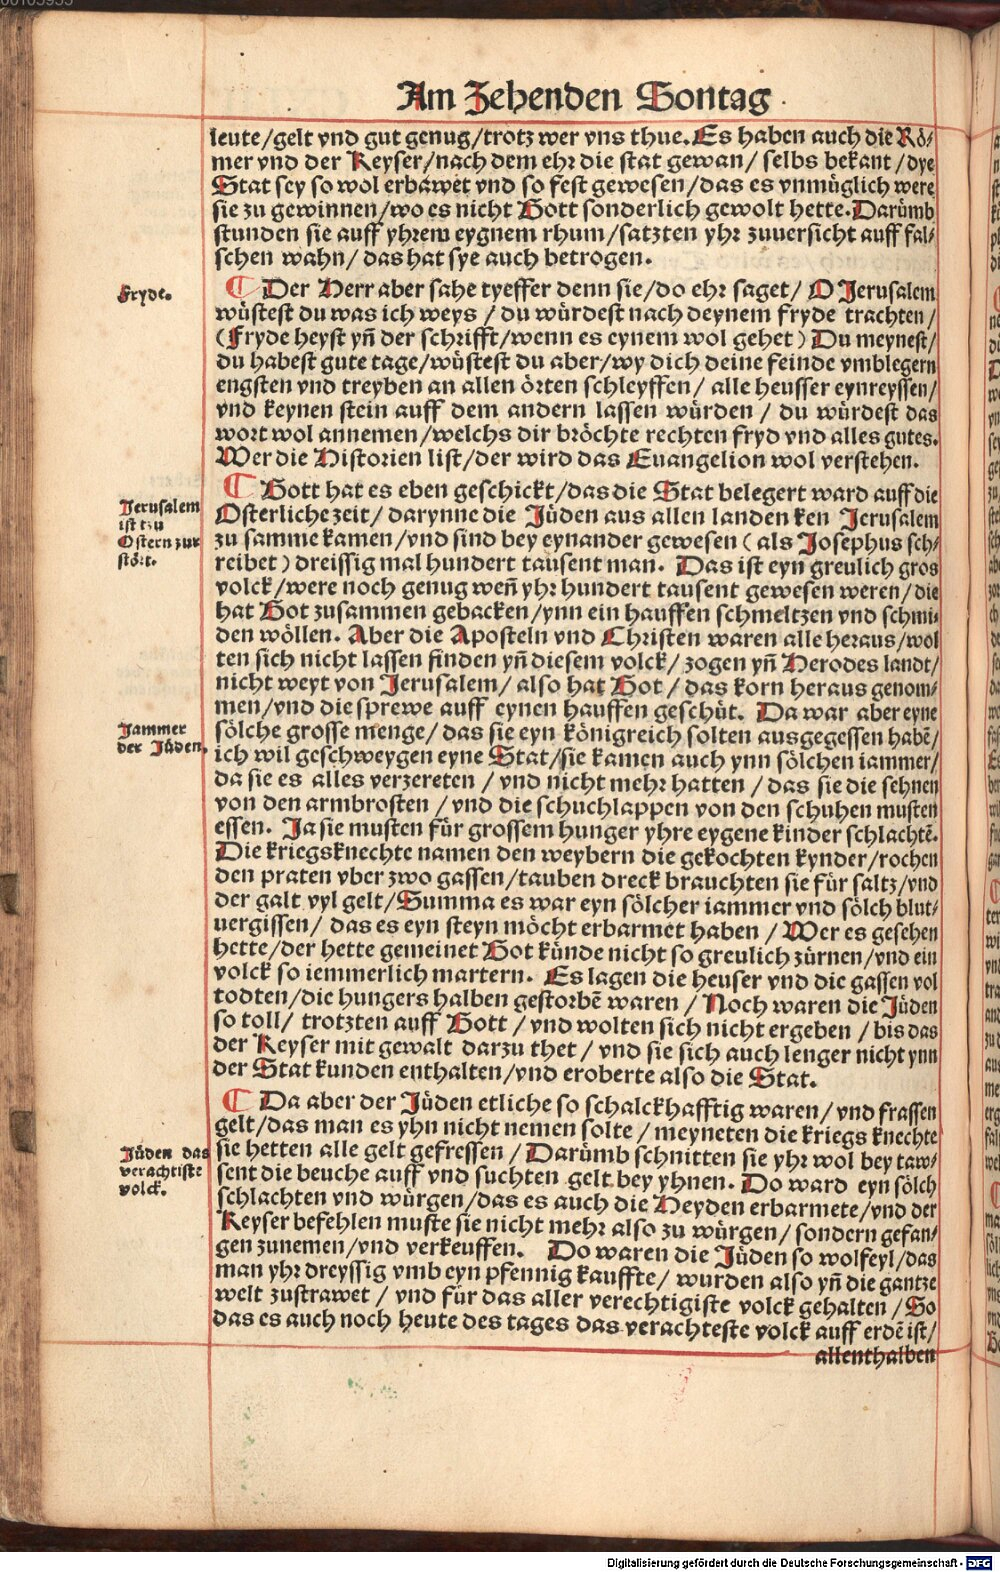 Am Zehenden Sontag.
leute/gelt vnd gut genug/trotz wer vns thue. Es haben auch die Rö⸗
mer vnd der Keyser/nach dem ehr die stat gewan/ selbs bekant/dye
Stat sey so wol erbawet vnd so fest gewesen/das es vnmüglich were
sie zu gewinnen/wo es nicht Gott sonderlich gewolt hette. Darümb
stunden sie auff yhrem eygnem rhum/satzten yhr zuuersicht auff fal⸗
schen wahn/ das hat sye auch betrogen.
Fryde.
¶ Der Herr aber sahe tyeffer denn sie/do ehr saget/ O Jerusalem
wüstest du was ich weys/ du würdest nach deynem fryde trachten/
(Fryde heyst yñ der schrifft/wenn es eynem wol gehet) Du meynest/
du habest gute tage/wüstest du aber/wy dich deine feinde vmblegern
engsten vnd treyben an allen örten schleyffen/ alle heusser eynreyssen/
vnd keynen stein auff dem andern lassen würden/ du würdest das
wort wol annemen/welchs dir bröchte rechten fryd vnd alles gutes.
Wer die Historien list/der wird das Euangelion wol verstehen.
Jerusalem
ist tzu
Ostern zur
stört.
¶ Gott hat es eben geschickt/das die Stat belegert ward auff die
Osterliche zeit/ darynne die Jüden aus allen landen ken Jerusalem
zu samme kamen/vnd sind bey eynander gewesen (als Josephus sch⸗
reibet) dreissig mal hundert tausent man. Das ist eyn greulich gros
volck/were noch genug weñ yhr hundert tausent gewesen weren/die
hat Got zusammen gebacken/ynn ein hauffen schmeltzen vnd schmi⸗
den wöllen. Aber die Aposteln vnd Christen waren alle heraus/wol
ten sich nicht lassen finden yñ diesem volck/ zogen yñ Herodes landt/
nicht weyt von Jerusalem/ also hat Got/ das korn heraus genom⸗
men/vnd die sprewe auff eynen hauffen geschüt. Da war aber eyne
Jammer
der Jüden.
sölche grosse menge/das sie eyn königreich solten ausgegessen habẽ/
ich wil geschweygen eyne Stat/sie kamen auch ynn sölchen iammer/
da sie es alles verzereten/ vnd nicht mehr hatten/ das sie die sehnen
von den armbrosten/vnd die schuchlappen von den schuhen musten
essen. Ja sie musten für grossem hunger yhre eygene kinder schlachtẽ.
Die kriegsknechte namen den weybern die gekochten kynder/rochen
den praten vber zwo gassen/tauben dreck brauchten sie für saltz/vnd
der galt vyl gelt/Summa es war eyn sölcher iammer vnd sölch blut⸗
uergissen/ das es eyn steyn möcht erbarmet haben/ Wer es gesehen
hette/der hette gemeinet Got künde nicht so greulich zürnen/vnd ein
volck so iemmerlich martern. Es lagen die heuser vnd die gassen vol
todten/die hungers halben gestorbẽ waren/ Noch waren die Jüden
so toll/ trotzten auff Gott/vnd wolten sich nicht ergeben/bis das
der Keyser mit gewalt darzu thet/ vnd sie sich auch lenger nicht ynn
der Stat kunden enthalten/vnd eroberte also die Stat.
¶ Da aber der Jüden etliche so schalckhafftig waren/vnd frassen
gelt/das man es yhn nicht nemen solte/meyneten die kriegs knechte
Jüden das
verachtiste
volck.
sie hetten alle gelt gefressen/ Darümb schnitten sie yhr wol bey taw⸗
sent die beuche auff vnd suchten gelt bey yhnen. Do ward eyn sölch
schlachten vnd würgen/das es auch die Heyden erbarmete/vnd der
Keyser befehlen muste sie nicht mehr also zu würgen/sondern gefan⸗
gen zunemen/vnd verkeuffen. Do waren die Jüden so wolfeyl/das
man yhr dreyssig vmb eyn pfennig kauffte/ wurden also yñ die gantze
welt zustrawet/ vnd für das aller verechtigiste volck gehalten/So
das es auch noch heute des tages das verachteste volck auff erdẽ ist/
allenthalben
Digitalisierung gefördert durch die Deutsche Forschungsgemeinschaft - DFG